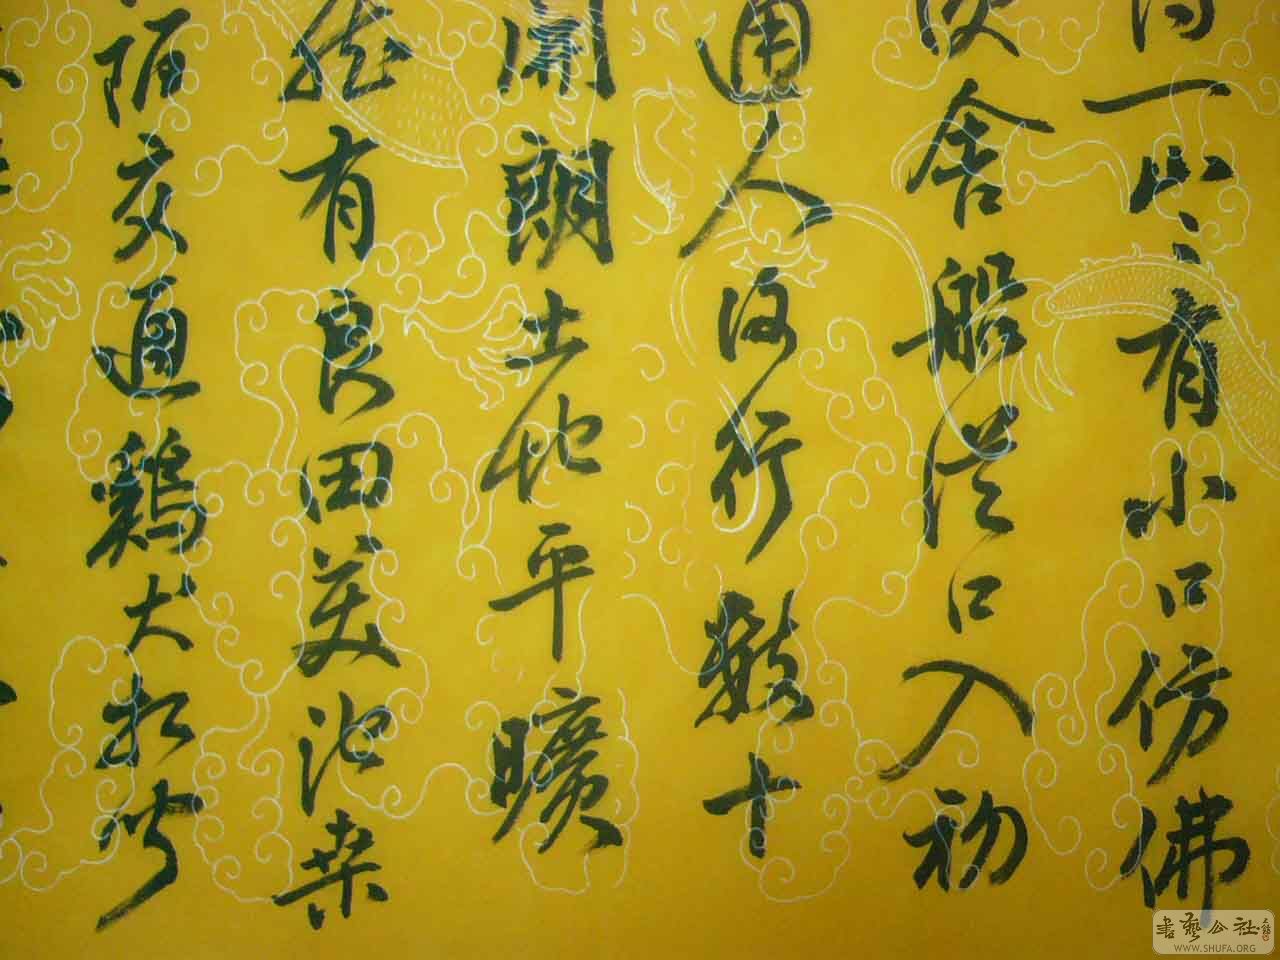 得一山山有小口仿佛
便舍船从口入初
通人復行数十
開朗土地平曠
然有良田美池桑
陌交通鷄犬相聞
書藝公社
WWW.SHUFA.ORG